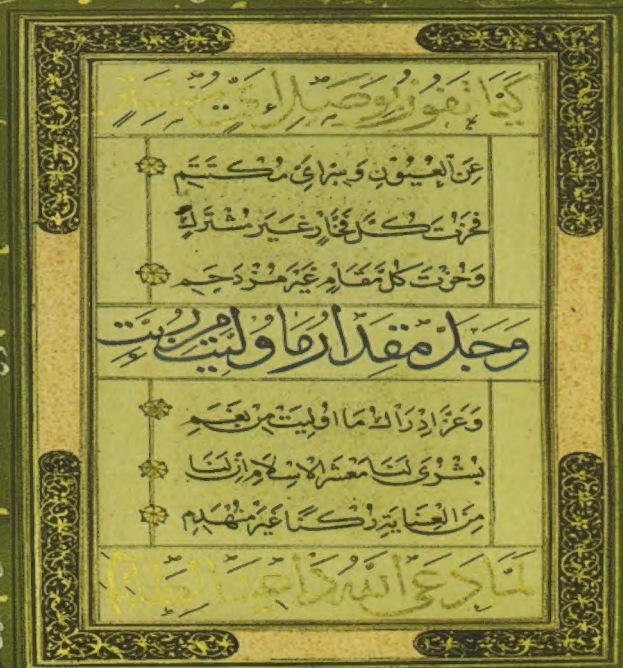 كَيْمَا تَفُوزَ بِوَصْلٍ أَيِّ مُسْتَتِرٍ
عَنِ الْعُيُونِ وَسِرٍّ أَيِّ مُكْتَتَمِ
فَحُزْتَ كُلَّ فَخَارٍ غَيْرَ مُشْتَرَكٍ
وَجُزْتَ كُلَّ مَقَامٍ غَيْرَ مُزْدَحَمِ
وَجَلَّ مِقْدَارُ مَا وُلِّيتَ مِنْ رُتَبٍ
وَعَزَّ إِدْرَاكُ مَا أُولِيتَ مِنْ نِعَمِ
بُشْرَى لَنَا مَعْشَرَ الْإِسْلَامِ إِنَّ لَنَا
مِنَ الْعِنَايَةِ رُكْنًا غَيْرَ مُنْهَدِمِ
لَمَّا دَعَى اللهُ دَاعِينَا لِطَاعَتِهِ